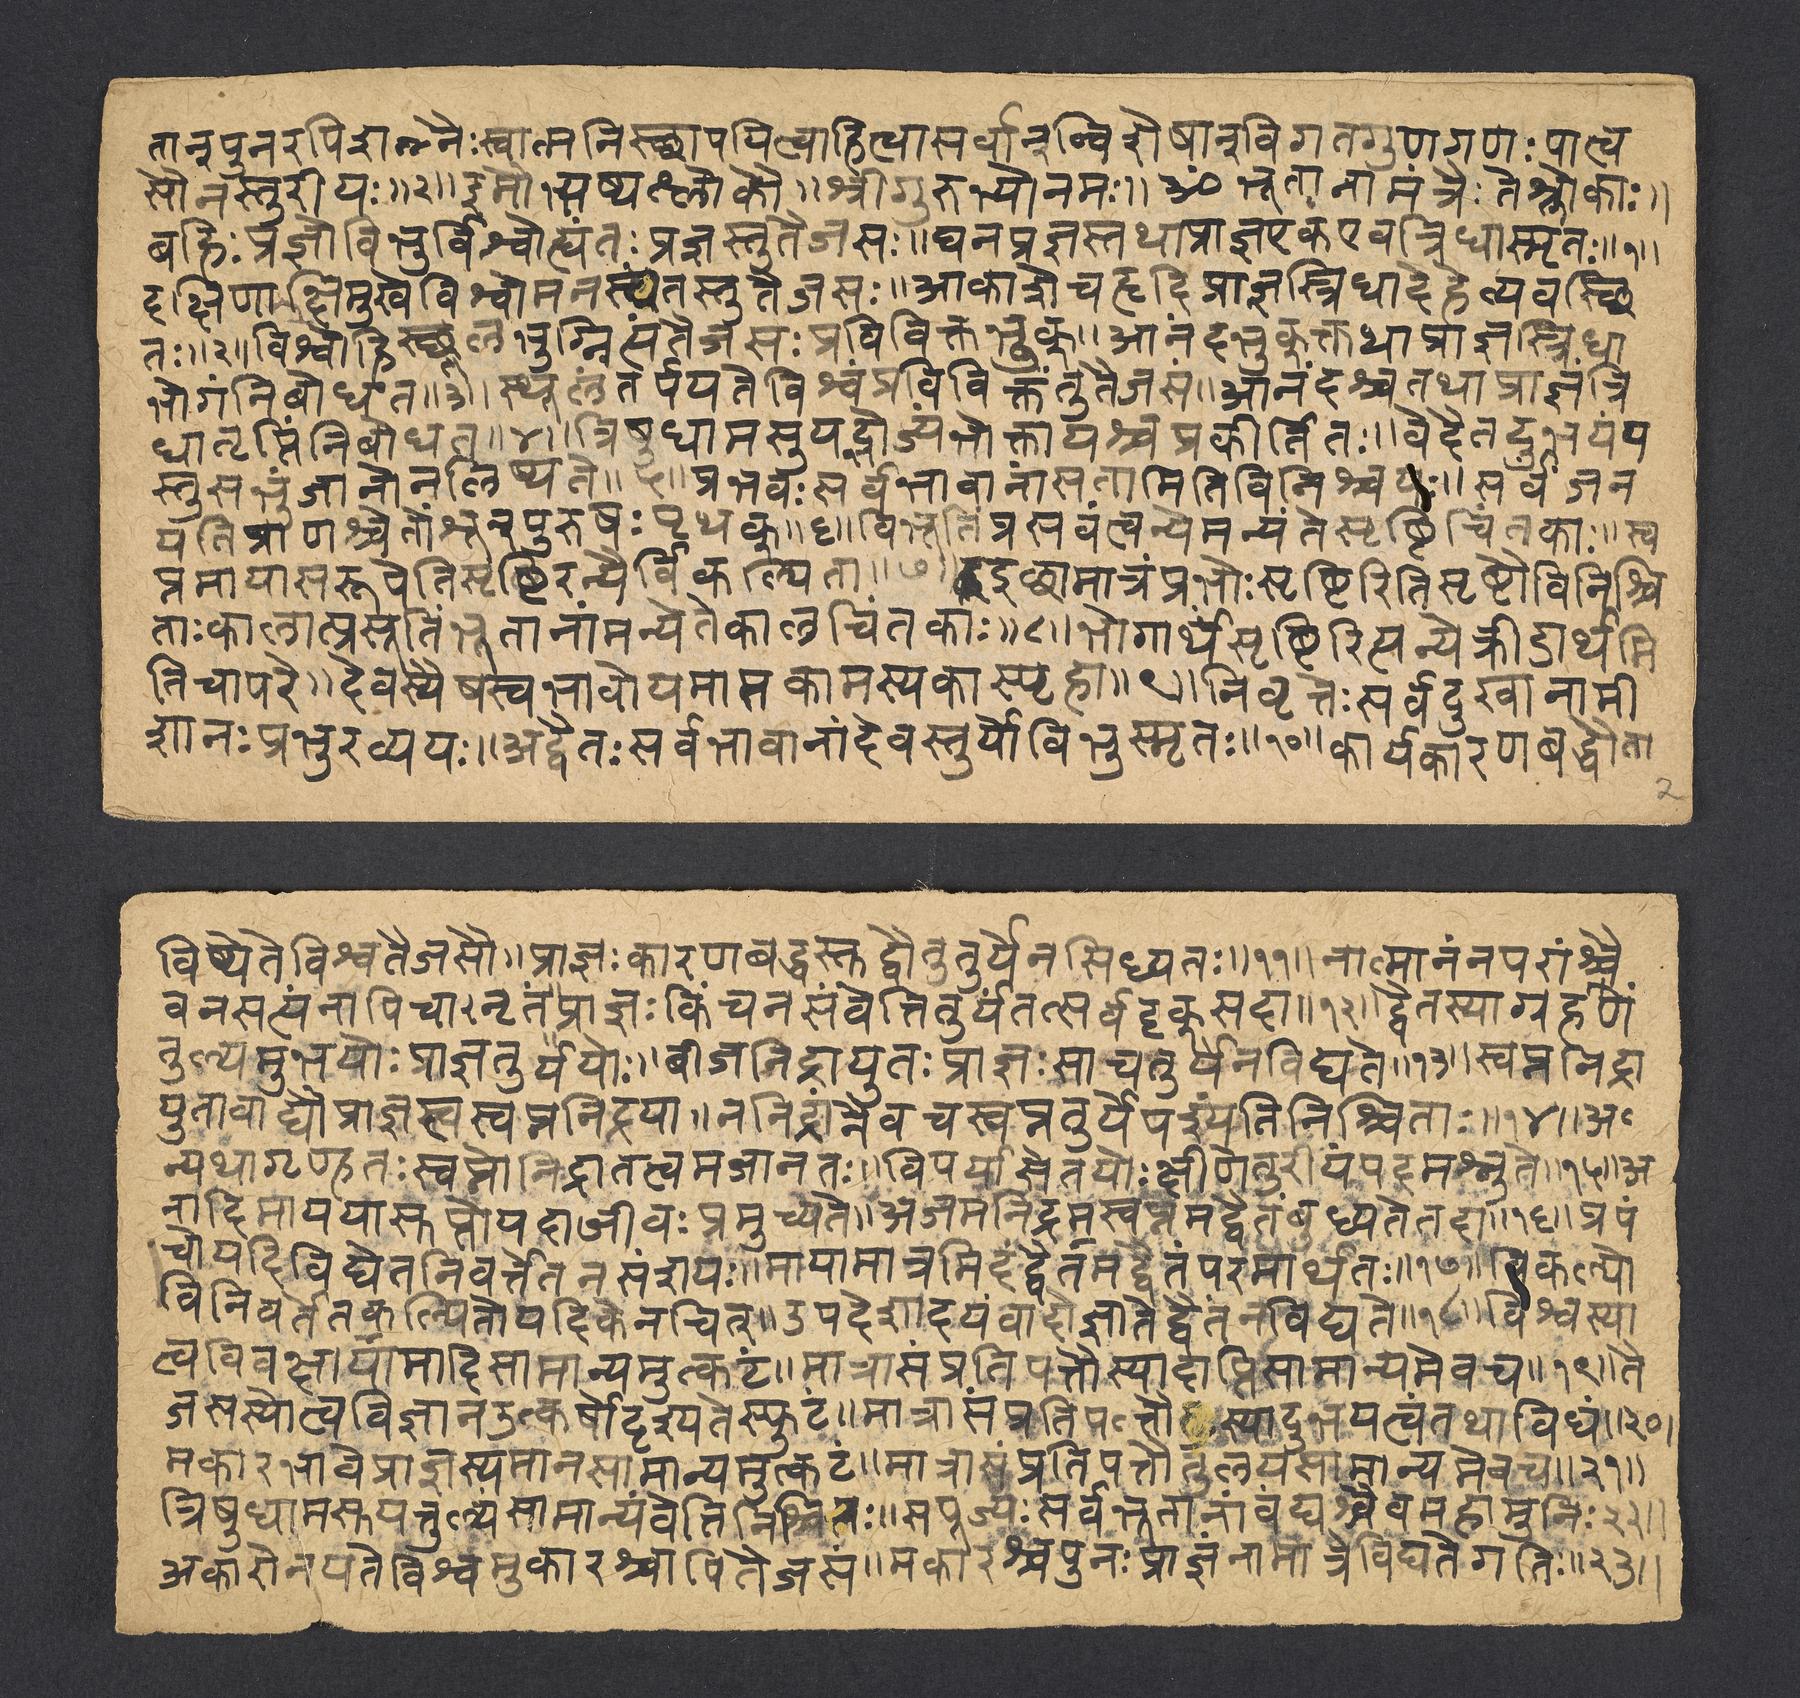 तान्पुनरपिशनैःस्वात्मनिस्थापयित्वाहित्वासर्वान्विशेषान्विगतगुणगणःपात्व
सौनस्तुरीयः॥२॥इमौभाष्यश्लोकौ॥श्रीगुरुभ्योनमः॥ॐ
बहिःप्रज्ञोविभुर्विश्वोत्द्यंतःप्रज्ञस्तुतैजसः॥घनप्रज्ञस्तथाप्राज्ञएकएवत्रिधास्मृतः॥१॥
दक्षिणाक्षिमुखेविश्वोमनस्यंतस्तुतैजसः॥आकाशेचहृदिप्राज्ञस्त्रिधादेहेव्यवस्थि
तः॥२॥विश्वोहिस्थूलभुग्नित्यंतैजसःप्रविविक्तभुक्॥आनंदभुक्तथाप्राज्ञस्त्रिधा
भोगंनिबोधत॥३॥स्थूलंतर्पयतेविश्वंप्रविविक्तंतुतैजसं॥आनंदश्चतथाप्राज्ञंत्रि
धातृप्तिंनिबोधत॥४॥त्रिषुधामसुयद्भोज्यंभोक्तायश्चप्रकीर्तितः॥वेदैतदुभयंय
स्तुसभुंजानोनलिप्यते॥५॥प्रभवःसर्वभावानांसतामितिविनिश्चयः॥सर्वंजन
यतिप्राणश्चेतोंशून्पुरुषःपृथक्॥६॥विभूतिंप्रसवंत्वन्येमन्यंतेसृष्टिचिंतकाः॥स्व
प्नमायासरूपेतिसृष्टिरन्यैर्विकल्पिता॥७॥इइच्छामात्रंप्रभोःसृष्टिरितिसृष्टौविनिश्चि
ताःकालात्प्रसूतिंभूतानांमन्यंतेकालचिंतकाः॥८॥भोगार्थंसृष्टिरित्यन्येक्रीडार्थमि
तिचापरे॥देवस्यैषस्वभावोयमाप्तकामस्यकास्पृहा॥९॥निवृत्तेःसर्वदुखानामी
शानःप्रभुरव्ययः॥अद्वैतःसर्वभावानांदेवस्तुर्योविभुस्मृतः॥१०॥कार्यकारणबद्धौता
२
विष्येतेविश्वतैजसौ॥प्राज्ञःकारणबद्धस्तुद्वौतुतुर्येनसिध्यतः॥११॥नात्मानंनपरांश्चै
वनसत्यंनापिचानृतंप्राज्ञःकिंचनसंवेत्तितुर्यंतत्सर्वदृक्सदा॥१२॥द्वैतस्याग्रहणं
तुल्यमुभयोःप्राज्ञतुर्ययोः॥बीजनिद्रायुतःप्राज्ञःसाचतुर्येनविद्यते॥१३॥स्वप्ननिद्रा
युतावाद्यौप्राज्ञस्त्वस्वप्ननिद्रया॥ननिद्रांनैवचस्वप्नंतुर्येपश्यंतिनिश्चिताः॥१४॥अ
न्यथागृण्हतःस्वप्नोनिद्रातत्त्वमजानतः॥विपर्यासेतयोःक्षीणेतुरीयंपदमश्नुते॥१५॥अ
नादिमाययासुप्तोयदाजीवःप्रमुच्यते॥अजमनिद्रमस्वप्नमद्वैतंबुध्यतेतदा॥१६॥प्रपं
चोयदिविद्येतनिवर्त्तेतनसंशयः॥मायामात्रमिदंद्वैतमद्वैतंपरमार्थतः॥१७॥विकल्पो
विनिवर्तेतकल्पितोयदिकेनचित्॥उपदेशादयंवादोज्ञातेद्वैतंनविद्यते॥१८॥विश्वस्या
त्वविवक्षायामादिसामान्यमुत्कटं॥मात्रासंप्रतिपत्तौस्यादाप्तिसामान्यमेवच॥१९॥तै
जसस्योत्वविज्ञानउत्कर्षोदृश्यतेस्फुटं॥मात्रासंप्रतिपत्तौस्यादुभयत्वंतथाविधं॥२०॥
मकारभावेप्राज्ञस्यमानसामान्यमुत्कटं॥मात्रासंप्रतिपत्तौतुलयसामान्यमेवच॥२१॥
त्रिषुधामसुयत्तुल्यंसामान्यंवेत्तिनिश्चितः॥सपूज्यःसर्वभूतानांवंद्यश्चैवमहामुनिः२२॥
अकारोनयतेविश्वमुकारश्चापितैजसं॥मकारश्चपुनःप्राज्ञंनामात्रेविद्यतेगतिः॥२३॥